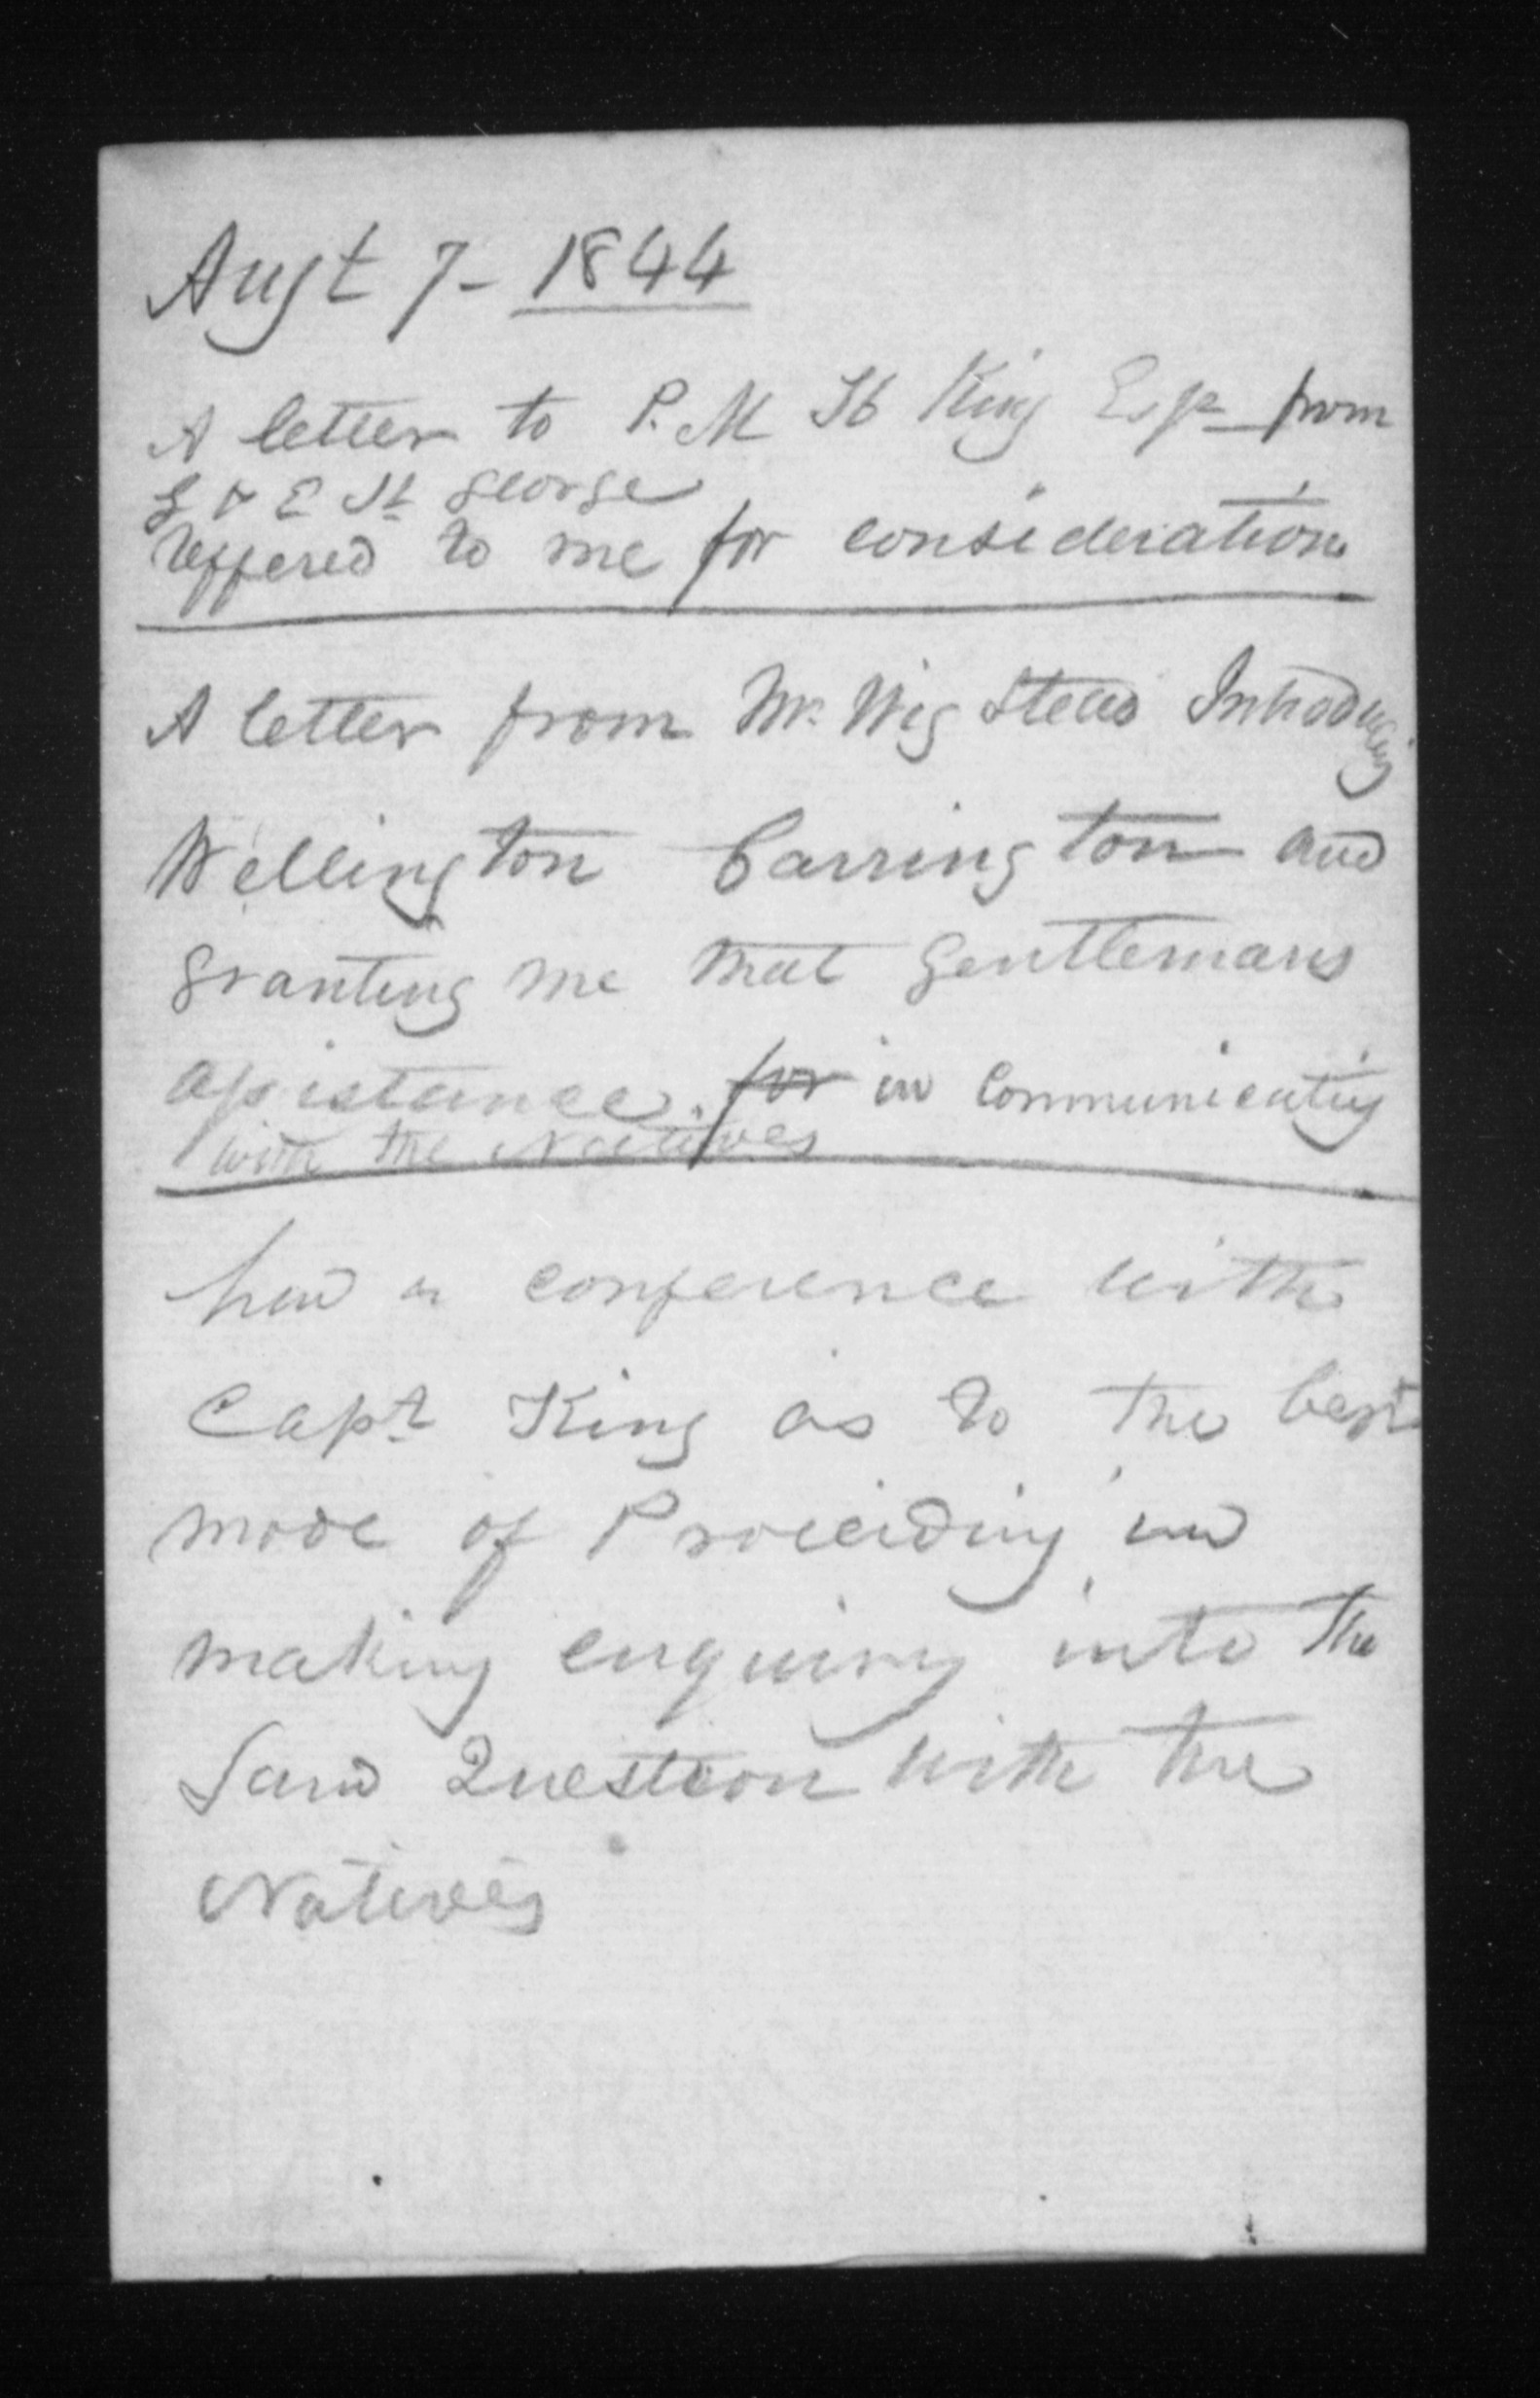 Augt 7 - 1844
A letter to P. M. H King Esqr from
G & E St George
reffered to me for consideration
A letter from Mr. Wigstead Introducing
Wellington Carrington and
granting me that gentlemans
assistance. for in communicating
with the Natives
had a conference with
Capt King as to the best
mode of Proceeding in
making enquiry into the
Land Question with the
Natives